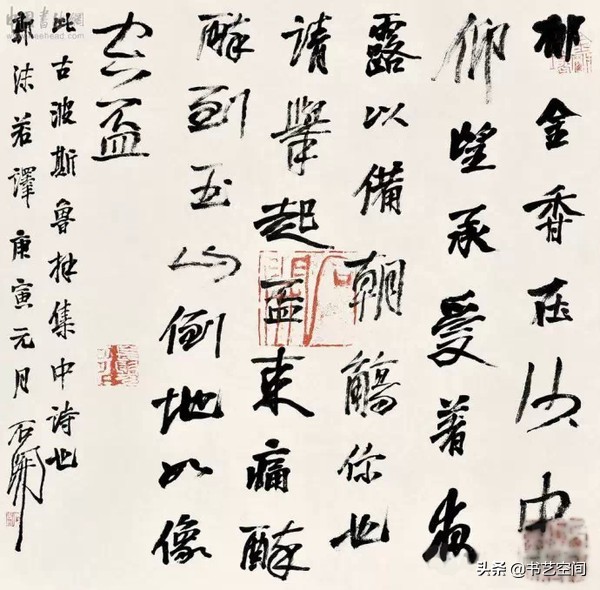 郁金香在沙中
仰望承受着夜
露以備朝觴你也
請舉起盃来痛醉
醉到玉山倒地如像
空盃
此古波斯魯拜集中诗也
郭沫若譯庚寅元月石開
头条 @书艺空间